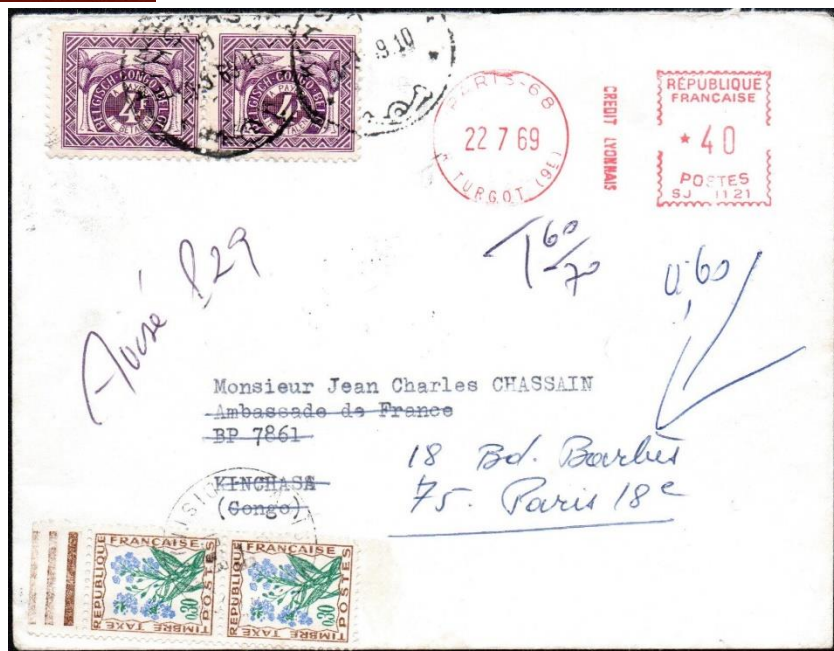 BELGISCH-CONGO BELGE
4F
BELGISCH-CONGO BELGE
4F
9.10
PARIS-68
22 7 69
R. TURGOT (9E)
CREDIT LYONNAIS
RÉPUBLIQUE
FRANCAISE
* 40
POSTES
SJ 1121
T 60/70
0.60
Avisé
829
Monsieur Jean Charles CHASSAIN
Ambassade de France
BP 7861
KINCHASA
(Congo)
18 Bd. Barbès
75. Paris 18e
REPUBLIQUE FRANCAISE
POSTES
0,30
TIMBRE TAXE
REPUBLIQUE FRANCAISE
POSTES
0,30
TIMBRE TAXE